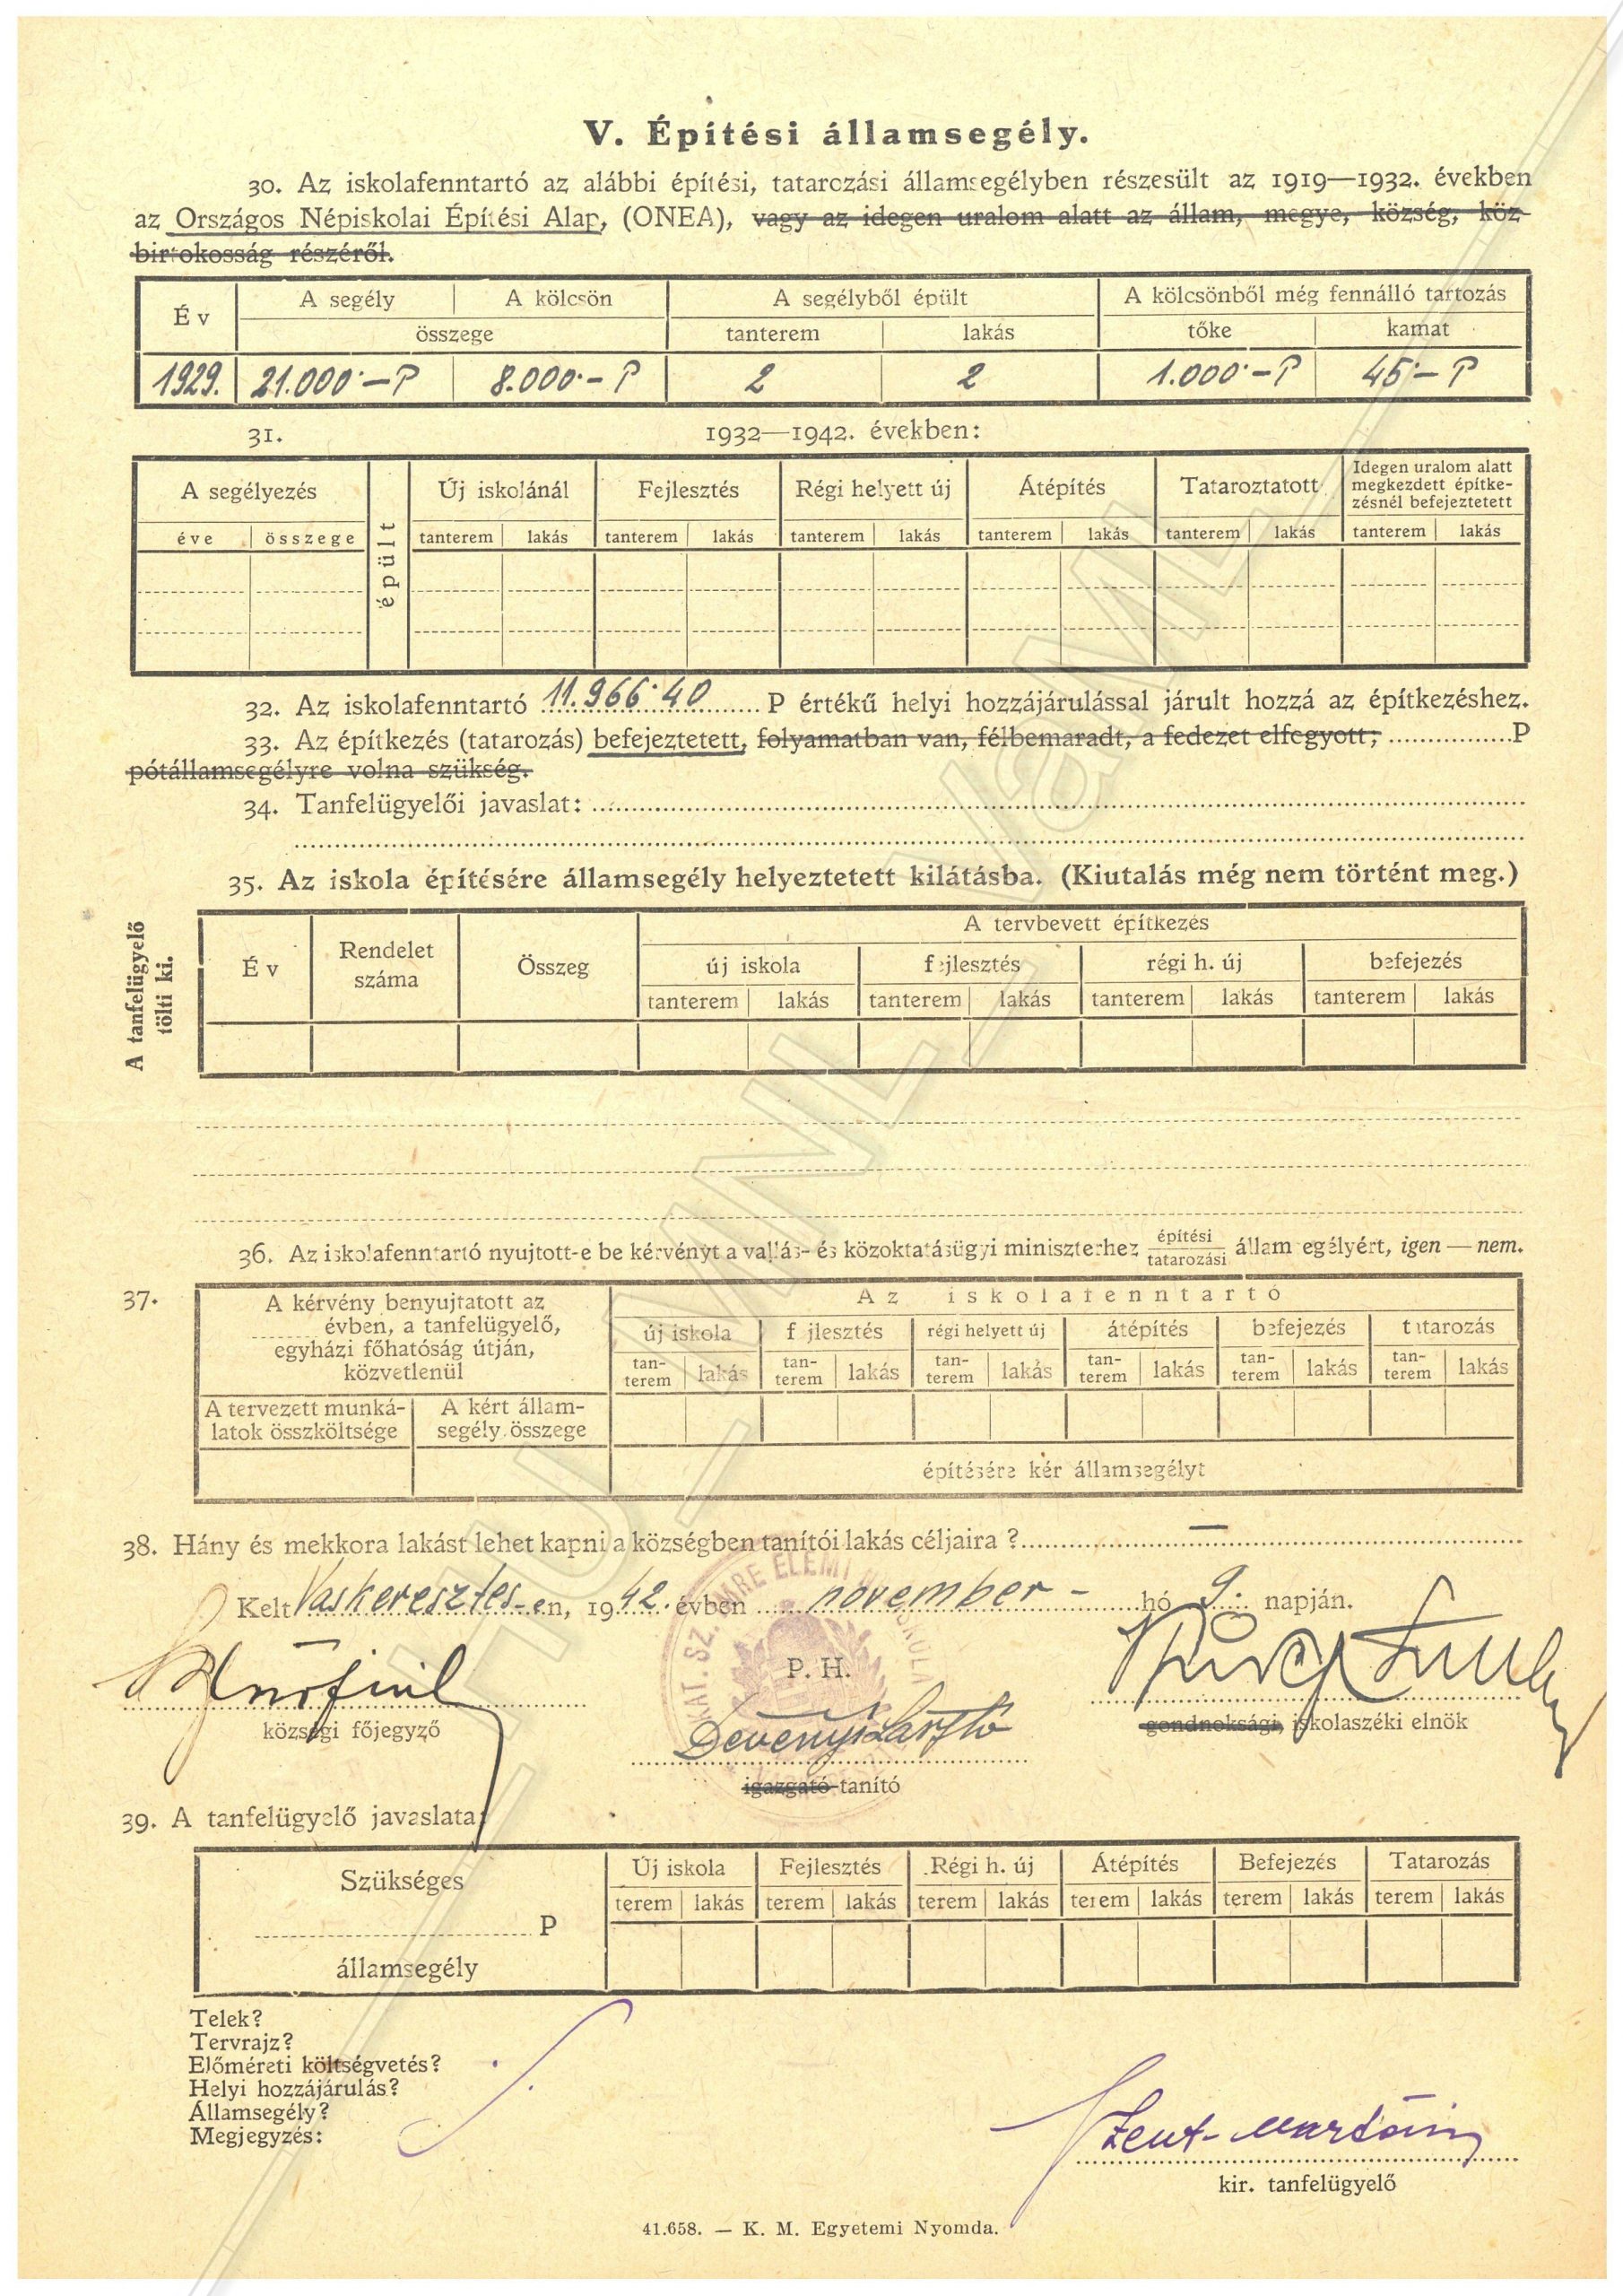 V. Építési államsegély.
30. Az iskolafenntartó az alábbi építési, tatarozási államsegélyben részesült az 1919—1932. években
az Országos Népiskolai Építési Alap, (ONEA), vagy az idegen uralom alatt az állam, megye, község, köz-
birtokosság részéről.
Év A segély A kölcsön A segélyből épült A kölcsönből még fennálló tartozás
összege tanterem lakás tőke kamat
1929. 21.000·—P 8.000·—P 2 2 1.000·—P 45·—P
31. 1932—1942. években:
A segélyezés épült Új iskolánál Fejlesztés Régi helyett új Átépítés Tataroztatott Idegen uralom alatt
megkezdett építke-
zésnél befejeztetett
éve összege tanterem lakás tanterem lakás tanterem lakás tanterem lakás tanterem lakás tanterem lakás
32. Az iskolafenntartó 11.966·40 P értékű helyi hozzájárulással járult hozzá az építkezéshez.
33. Az építkezés (tatarozás) befejeztetett, folyamatban van, félbemaradt, a fedezet elfogyott, P
pótállamsegélyre volna szükség.
34. Tanfelügyelői javaslat:
35. Az iskola építésére államsegély helyeztetett kilátásba. (Kiutalás még nem történt meg.)
A tanfelügyelő
tölti ki.
Év Rendelet
száma Összeg A tervbevett építkezés
új iskola fejlesztés régi h. új befejezés
tanterem lakás tanterem lakás tanterem lakás tanterem lakás
36. Az iskolafenntartó nyujtott-e be kérvényt a vallás- és közoktatásügyi miniszterhez építési
tatarozási államsegélyért, igen — nem.
37. A kérvény benyujtatott az
évben, a tanfelügyelő,
egyházi főhatóság útján,
közvetlenül
Az iskolafenntartó
új iskola fejlesztés régi helyett új átépítés befejezés tatarozás
tan-
terem lakás tan-
terem lakás tan-
terem lakás tan-
terem lakás tan-
terem lakás tan-
terem lakás
A tervezett munká-
latok összköltsége A kért állam-
segély összege
építésére kér államsegélyt
38. Hány és mekkora lakást lehet kapni a községben tanítói lakás céljaira ? —
Kelt Vaskeresztes-en, 1942. évben november - hó 9. napján.
P. H.
községi főjegyző
gondnoksági, iskolaszéki elnök
Devényi László
igazgató-tanító
39. A tanfelügyelő javaslata:
Szükséges
P
államsegély
Új iskola Fejlesztés Régi h. új Átépítés Befejezés Tatarozás
terem lakás terem lakás terem lakás terem lakás terem lakás terem lakás
Telek?
Tervrajz?
Előméreti költségvetés?
Helyi hozzájárulás?
Államsegély?
Megjegyzés:
Szent-Mártoni
kir. tanfelügyelő
41.658. — K. M. Egyetemi Nyomda.
HU_MNL_VaML